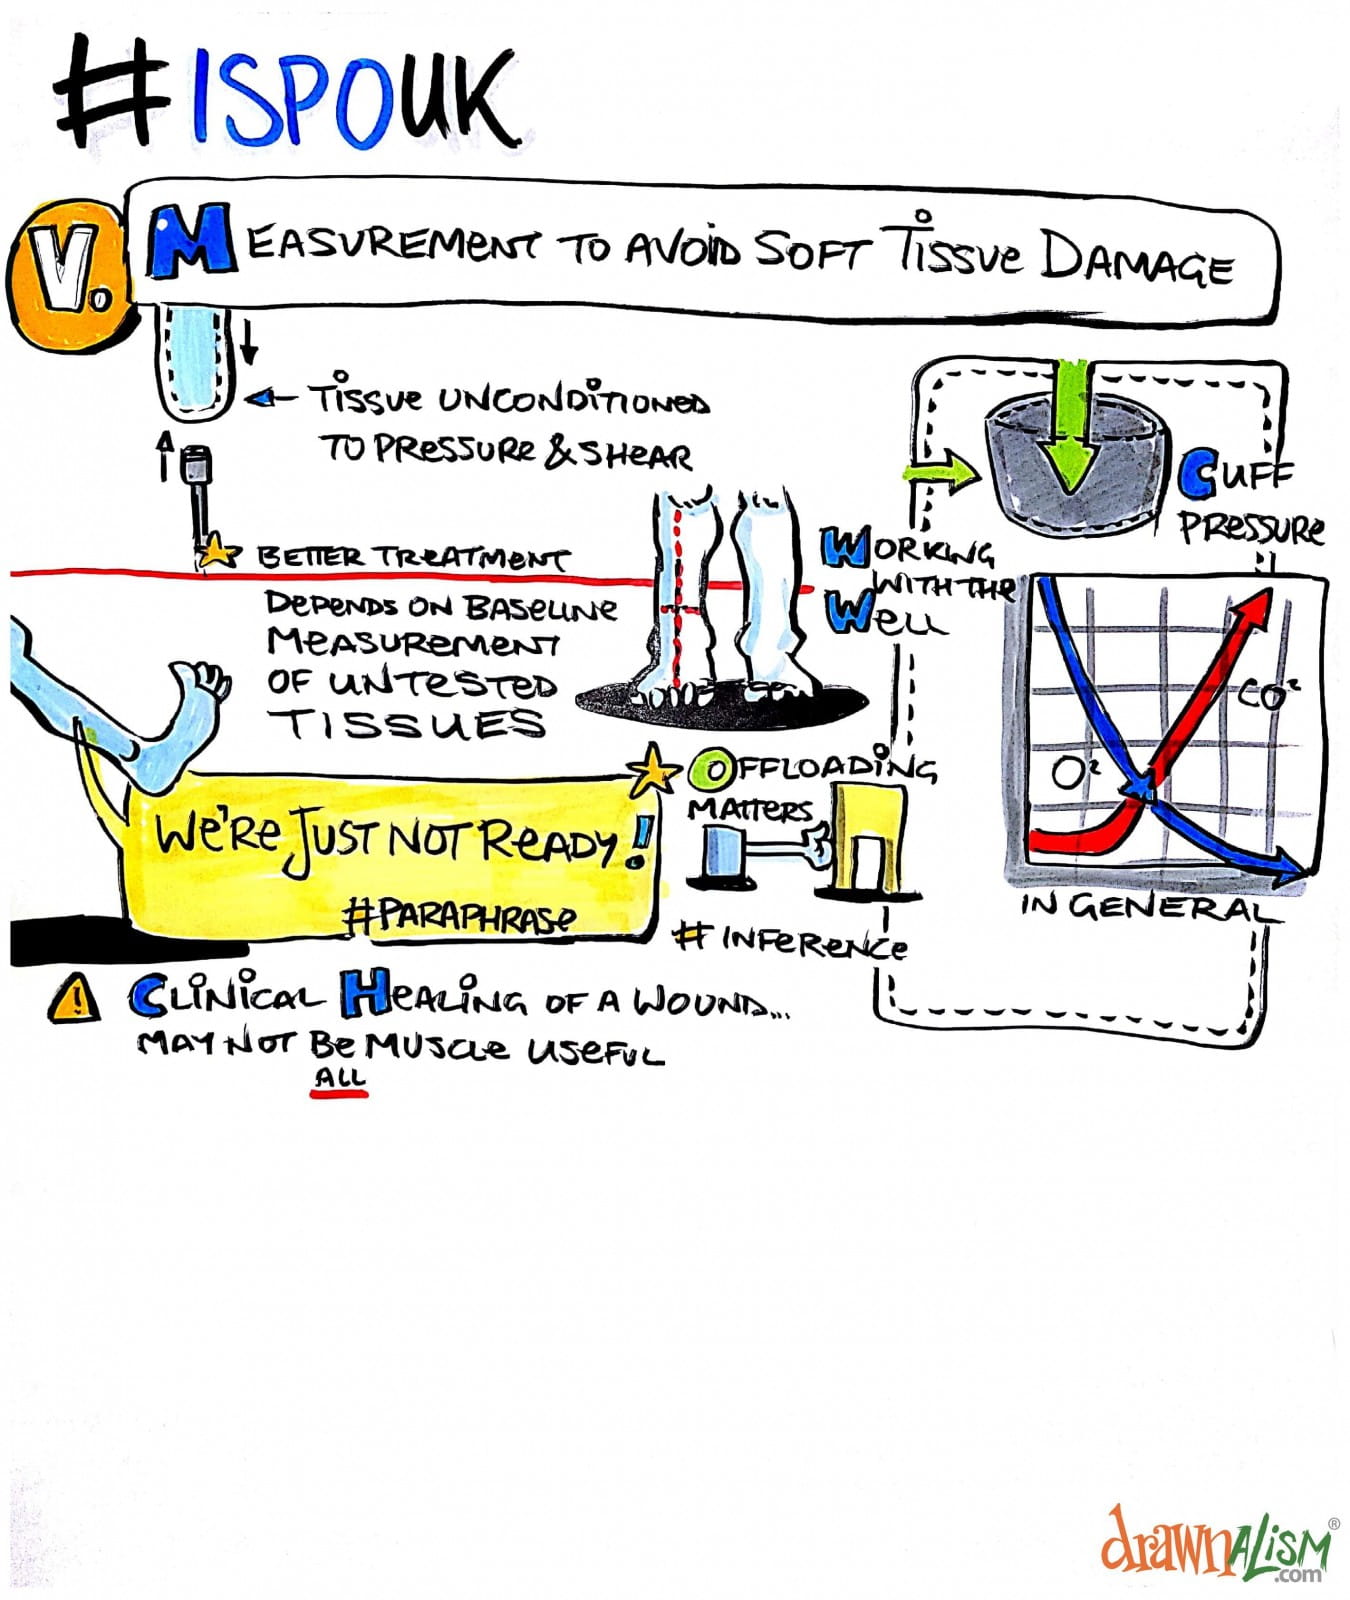 #ISPOUK
V. MEASUREMENT TO AVOID SOFT TISSUE DAMAGE
TISSUE UNCONDITIONED
TO PRESSURE & SHEAR
BETTER TREATMENT
DEPENDS ON BASELINE
MEASUREMENT
OF UNTESTED
TISSUES
WORKING
WITH THE
WELL
CUFF
PRESSURE
CO²
O²
IN GENERAL
OFFLOADING
MATTERS
# INFERENCE
WE'RE JUST NOT READY!
#PARAPHRASE
! CLINICAL HEALING OF A WOUND...
MAY NOT BE MUSCLE USEFUL
ALL
drawnALISM®
.com